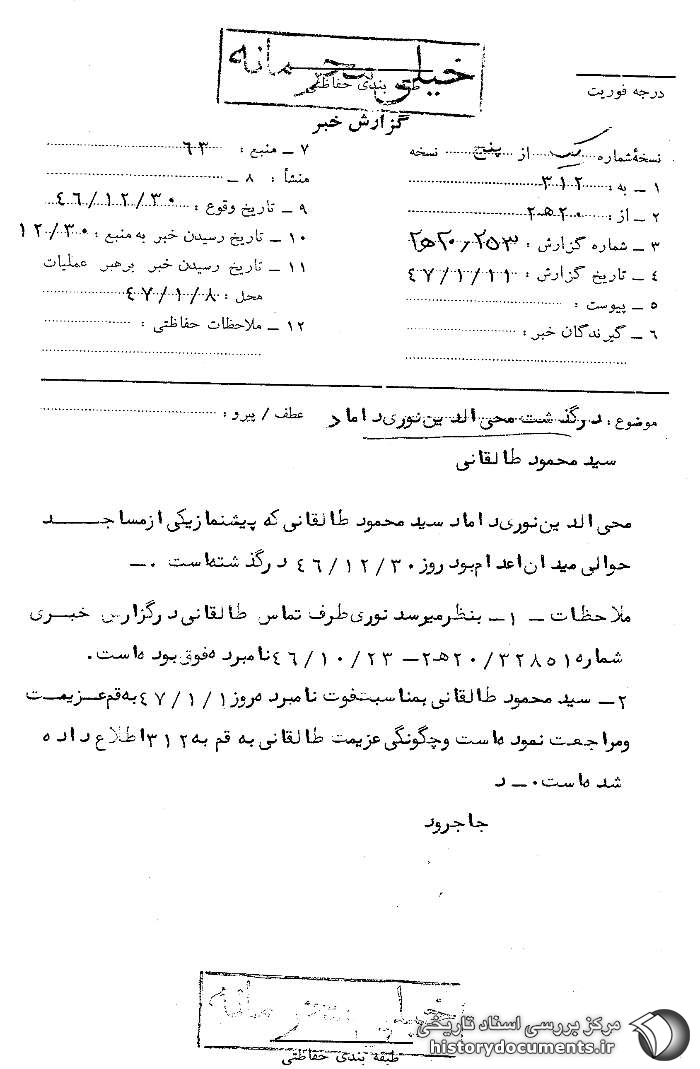 خیلی محرمانه
طبقه بندی حفاظتی
درجه فوریت
گزارش خبر
نسخهٔ شماره یک از پنج نسخه
۱ ـ به : ۳۱۲
۲ ـ از : ۲۰ه‍۲
۳ ـ شماره گزارش : ۲۵۳/۲۰ه‍۲
۴ ـ تاریخ گزارش : ۴۷/۱/۱۱
۵ ـ پیوست :
۶ ـ گیرندگان خبر :
۷ ـ منبع : ۶۳
۸ ـ منشأ :
۹ ـ تاریخ وقوع : ۴۶/۱۲/۳۰
۱۰ ـ تاریخ رسیدن خبر به منبع : ۱۲/۳۰
۱۱ ـ تاریخ رسیدن خبر برهبر عملیات
محل : ۴۷/۱/۸
۱۲ ـ ملاحظات حفاظتی :
موضوع : درگذشت محی الدین نوری داماد
عطف / پیرو :
سید محمود طالقانی
محی الدین نوری داماد سید محمود طالقانی که پیشنماز یکی از مساجد
حوالی میدان اعدام بود روز ۴۶/۱۲/۳۰ درگذشته است ۰ـ
ملاحظات ـ ۱ـ بنظر میرسد نوری طرف تماس طالقانی در گزارش خبری
شماره ۲۰/۳۲۸۵۱ه‍۲ـ ۴۶/۱۰/۲۳ نامبرده فوق بوده است.
۲ـ سید محمود طالقانی بمناسبت فوت نامبرده روز ۴۷/۱/۱ به قم عزیمت
ومراجعت نموده است وچگونگی عزیمت طالقانی به قم به ۳۱۲ اطلاع داده
شده است ۰ـ د
جاجرود
خیلی محرمانه
طبقه بندی حفاظتی
مرکز بررسی اسناد تاریخی
historydocuments.ir